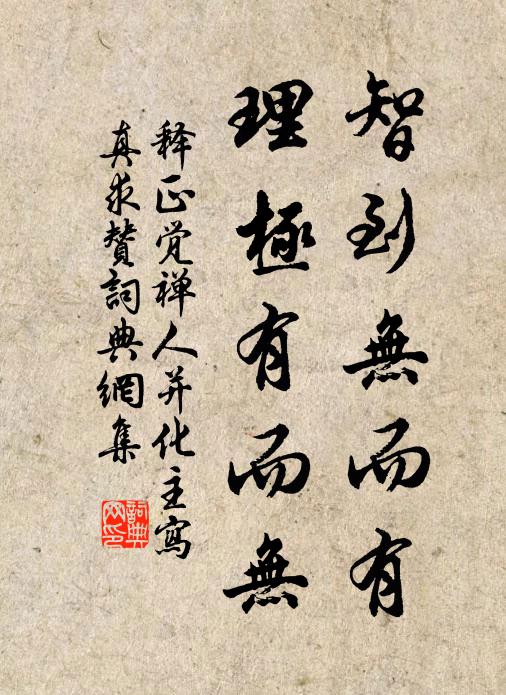 智到無而有
理極有而無
释正觉禅人并化主寫
真求赞詞典網集
詞典
网印